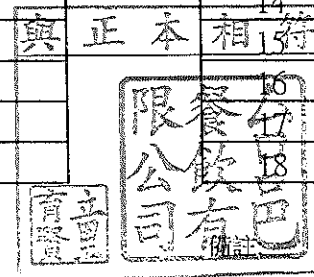 14
與正本相符
15
16
17
18
餐飲有
限公司
備註